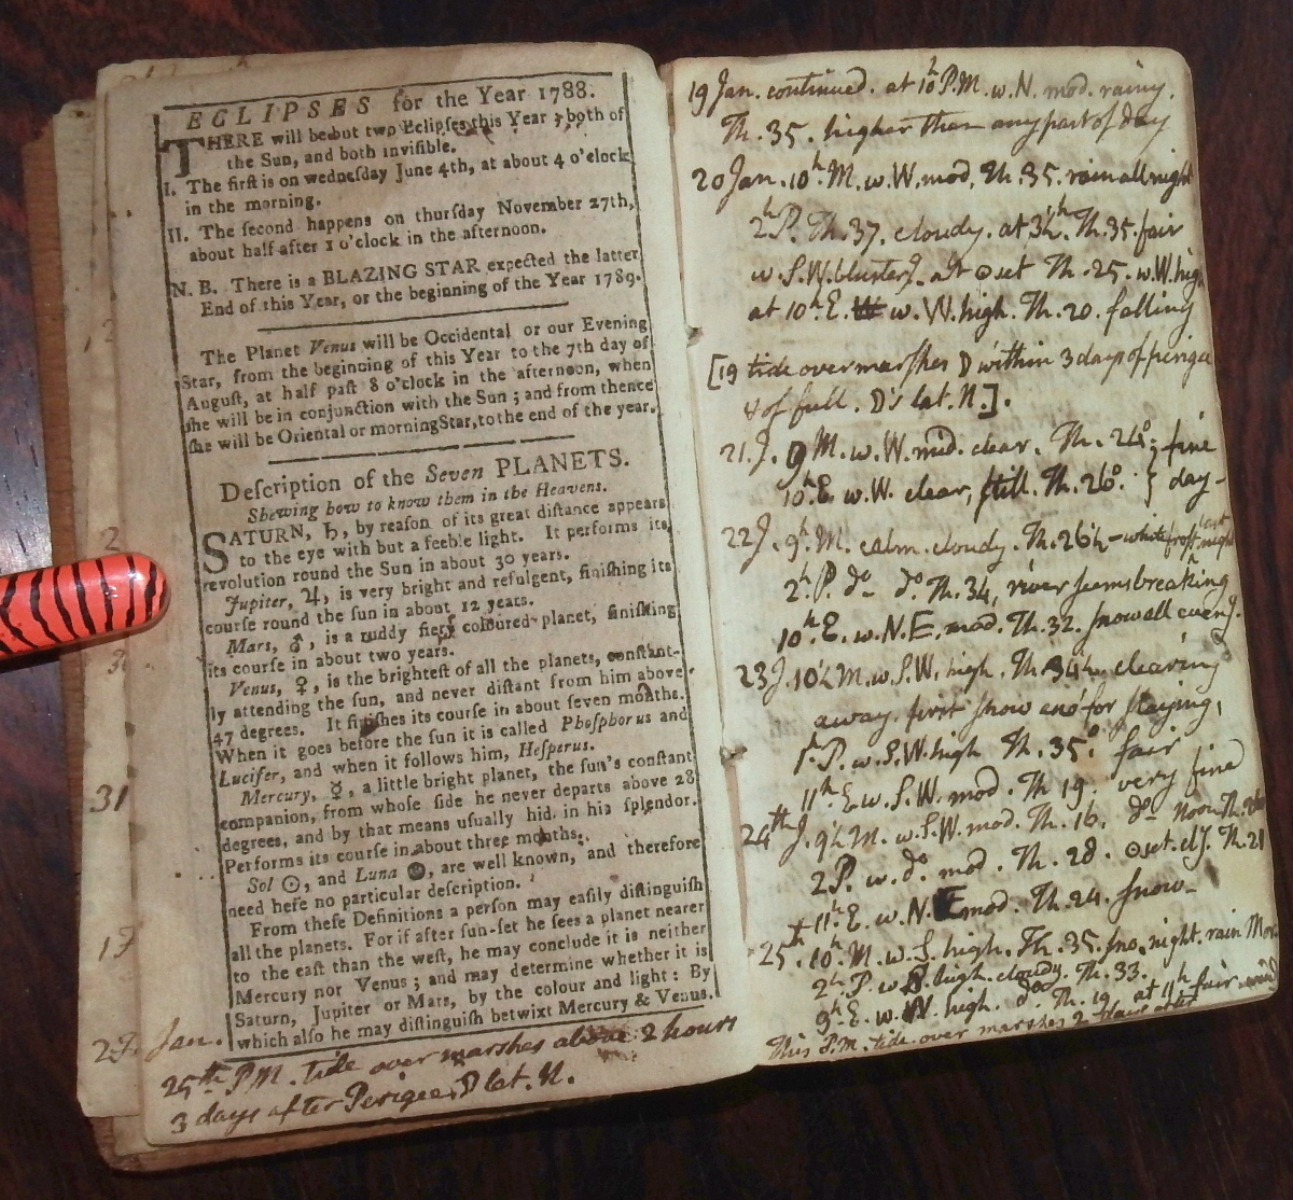 ECLIPSES for the Year 1788.
THERE will be but two Eclipſes this Year; both of
the Sun, and both inviſible.
I. The firſt is on wedneſday June 4th, at about 4 o'clock
in the morning.
II. The ſecond happens on thurſday November 27th,
about half after 1 o'clock in the afternoon.
N. B. There is a BLAZING STAR expected the latter
End of this Year, or the beginning of the Year 1789.
The Planet Venus will be Occidental or our Evening
Star, from the beginning of this Year to the 7th day of
Auguſt, at half paſt 8 o'clock in the afternoon, when
ſhe will be in conjunction with the Sun; and from thence
ſhe will be Oriental or morning Star, to the end of the year.
Deſcription of the Seven PLANETS.
Shewing how to know them in the Heavens.
SATURN, ♄, by reaſon of its great diſtance appears
to the eye with but a feeble light. It performs its
revolution round the Sun in about 30 years.
Jupiter, ♃, is very bright and refulgent, finiſhing its
courſe round the ſun in about 12 years.
Mars, ♂, is a ruddy fiery coloured planet, finiſhing
its courſe in about two years.
Venus, ♀, is the brighteſt of all the planets, conſtant-
ly attending the ſun, and never diſtant from him above
47 degrees. It finiſhes its courſe in about ſeven months.
When it goes before the ſun it is called Phoſphorus and
Lucifer, and when it follows him, Heſperus.
Mercury, ☿, a little bright planet, the ſun's conſtant
companion, from whoſe ſide he never departs above 28
degrees, and by that means uſually hid in his ſplendor.
Performs its courſe in about three months.
Sol ☉, and Luna, are well known, and therefore
need here no particular deſcription.
From theſe Definitions a perſon may eaſily diſtinguiſh
all the planets. For if after ſun-ſet he ſees a planet nearer
to the eaſt than the weſt, he may conclude it is neither
Mercury nor Venus; and may determine whether it is
Saturn, Jupiter or Mars, by the colour and light: By
which alſo he may diſtinguiſh betwixt Mercury & Venus.
Jan.
25th P.M. tide over marshes above 2 hours
3 days after Perigee, D lat. N.
31
17
19 Jan. continued. at 10h P.M. w. N. mod. rainy.
Th. 35. higher than any part of day
20 Jan. 10h. M. w. W. mod. Th. 35. rain all night
2h P. Th. 37. cloudy. at 3½h. Th. 35. fair
w. S.W. bluster'g. at ⊙ set Th. 25. w. W. hig
at 10h. E. w. W. high. Th. 20. falling
[19 tide over marshes D within 3 days of perige
& of full. D's lat. N.].
21. J. 9 M. w. W. mod. clear. Th. 24°; fine
10h. E. w. W. clear, still. Th. 26°. } day
22 J. 9h. M. calm. cloudy. Th. 26½ - white frost last night
2h. P. do do. Th. 34, river seems breaking
10h. E. w. N.E. mod. Th. 32. snow all eveng.
23 J. 10½ M. w. S.W. high. Th. 34½ clearing
away. first snow eno' for slaying,
1h P. w. S.W. high Th. 35° fair
11h. E. w. S.W. mod. Th 19. very fine
24th J. 9½ M. w. S.W. mod. Th. 16. do Noon Th.
2 P. w. do. mod. Th. 28. ⊙ set cl'y. Th. 21
11h. E. w. N.E mod. Th. 24. snow
25th. 10h. M. w. S. high. Th. 35. sno. night. rain Mor
2h. P. w. high. cloudy. Th. 33.
9h. E. w. W. high. do. Th. 19. at 11h fair
This P.M. tide over marshes 2